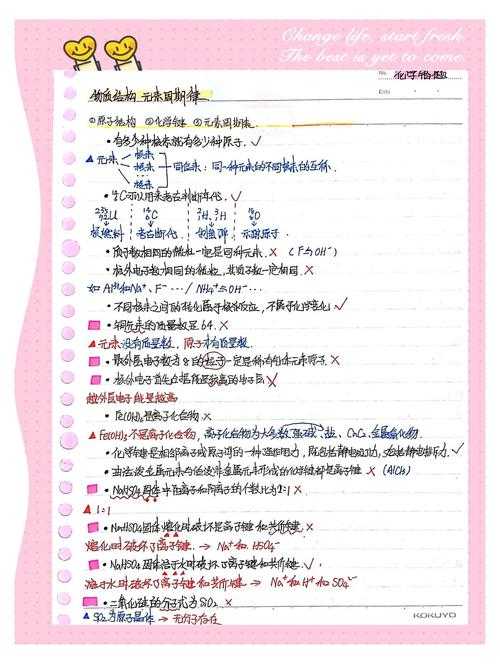 Change life, start fresh
The best is yet to come.
No. 化学错题
Date
物质结构 元素周期律
①原子结构 ②化学键 ③元素周期表.
• 有多少种核素就有多少种原子. ✓
▲元素 核素 核素 核素 同位素: 同一种元素的不同核素的互称.
• ¹⁴₆C可以用来考古判断年代. ✓
²³⁵₉₂U ¹⁴₆C ²₁H、³₁H ¹⁸₈O
核燃料 考古断代 制氢弹 示踪原子.
• 质子数相同的微粒一定是同种元素. × (F与OH⁻)
• 核外电子数相同的微粒, 其质子数一定相同. ×
如 Al³⁺和Na⁺、F⁻ … / NH₄⁺与OH⁻ …
• 不同核素之间的转化属于核反应, 不属于化学变化 ✓
• 铜元素的质量数是64. ×
▲元素没有质量数, 原子才有质量数.
• 最外层电子数为8的粒子一定是稀有气体元素原子. ×
• 核外电子首先占据能量较高的电子层 ×
越外层电子能量越高
• Fe(OH)₃是离子化合物 ×
▲Fe(OH)₃不是离子化合物, 离子化合物为大多数强碱、盐、CaC₂、金属氧化物.
• 化学键是相邻离子或原子间的一种强作用力, 既包括静电吸引力, 又包括静电斥力. ✓
• 由活泼金属元素与活泼非金属元素形成的化学键都是离子键 × (AlCl₃)
• NaHSO₄固体中阳离子和阴离子的个数比为2:1 ×
▲1:1
• NaHSO₄固体熔化时破坏是离子键和共价键. ×
熔化时破坏了离子键. → Na⁺和 HSO₄⁻
• NaHSO₄固体溶于水时破坏了离子键和共价键 ✓
溶于水时破坏了离子键和共价键 → Na⁺和H⁺和SO₄²⁻
• 二氧化硅的分子式为SiO₂ ×
▲SiO₂为原子晶体 → 无分子存在
KOKUYO